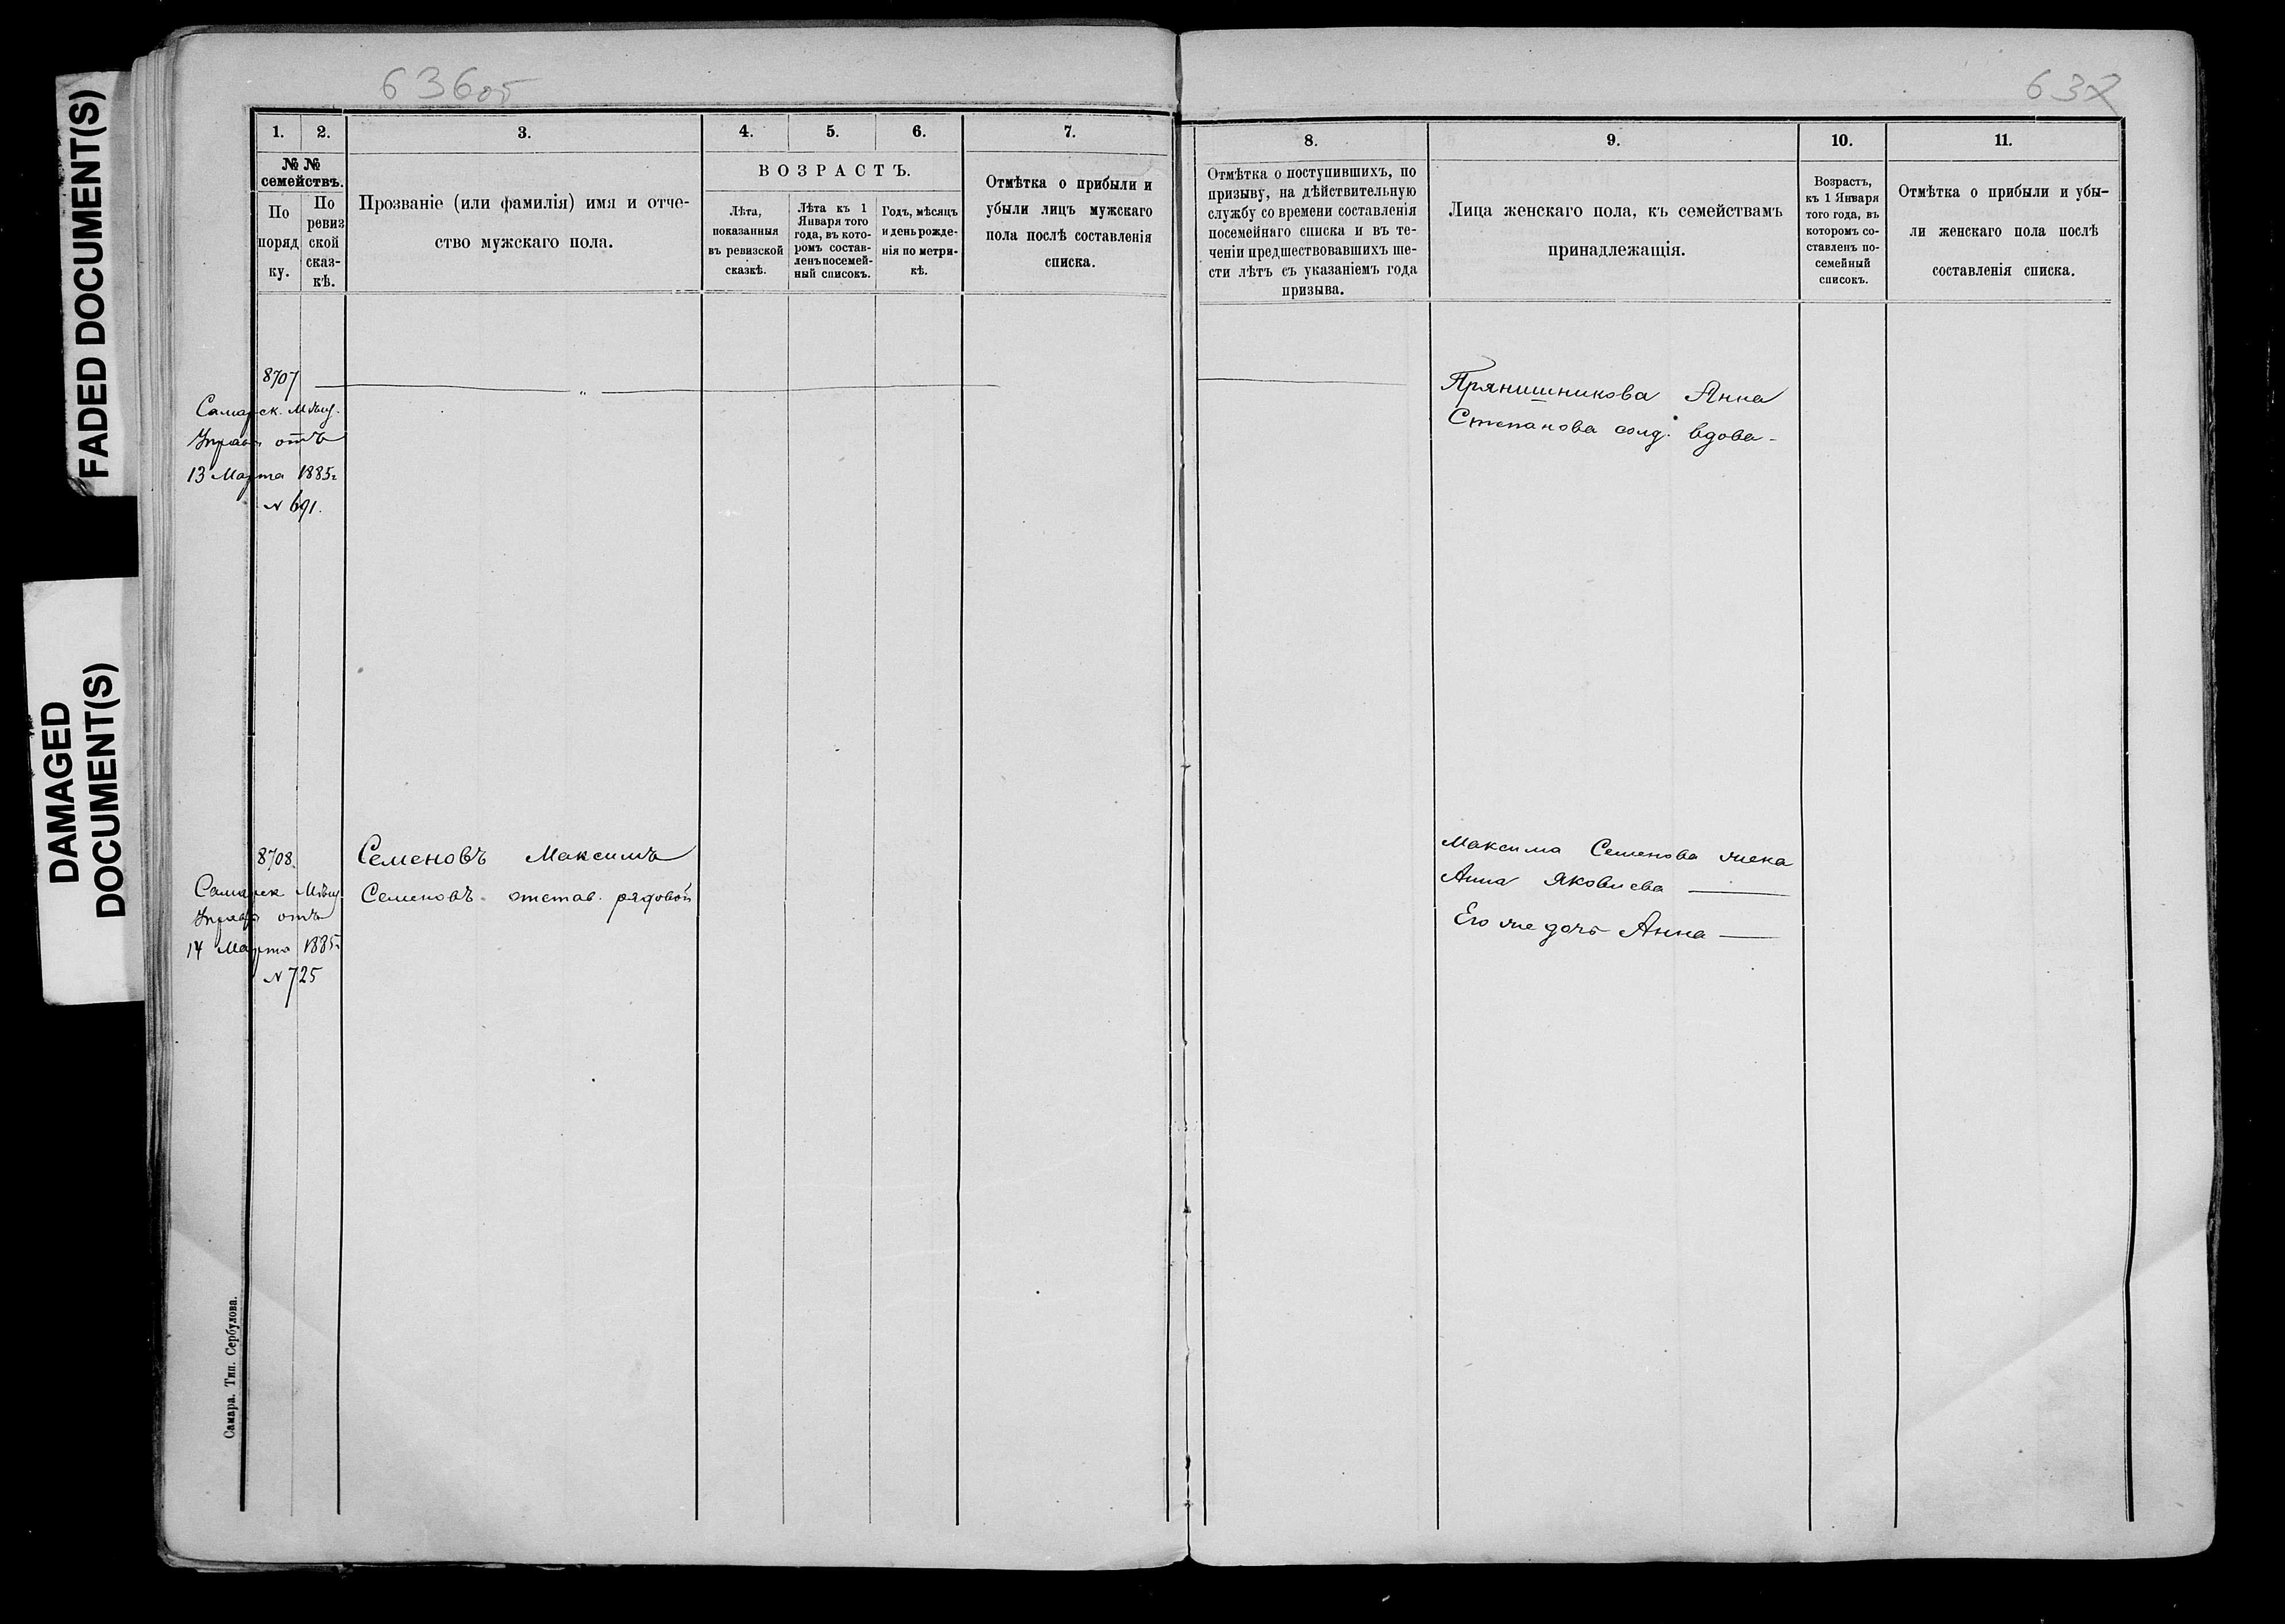 FADED DOCUMENT(S)
DAMAGED
DOCUMENT(S)
636об
637
1.
2.
3.
4.
5.
6.
7.
№ №
семействъ.
По
поряд
ку.
По
ревиз
ской
сказ-
кѣ.
Прозваніе (или фамилія) имя и отче-
ство мужскаго пола.
ВОЗРАСТЪ.
Лѣта,
показанныя
въ ревизской
сказкѣ.
Лѣта къ 1
Января того
года, въ кото-
ромъ состав-
ленъ посемей-
ный списокъ.
Годъ, мѣсяцъ
и день рожде-
нія по метри-
кѣ.
Отмѣтка о прибыли и
убыли лицъ мужскаго
пола послѣ составленія
списка.
8.
9.
10.
11.
Отмѣтка о поступившихъ, по
призыву, на дѣйствительную
службу со времени составленія
посемейнаго списка и въ те-
ченіи предшествовавшихъ ше-
сти лѣтъ съ указаніемъ года
призыва.
Лица женскаго пола, къ семействамъ
принадлежащія.
Возрастъ,
къ 1 Января
того года, въ
котором со-
ставленъ по-
семейный
списокъ.
Отмѣтка о прибыли и убы-
ли женскаго пола послѣ
составленія списка.
8707 — „ —
Самарск. Мѣщ.
Управы отъ
13 Марта 1885г
N 691.
Прянишникова Анна
Степанова солд. вдова -
8708.
Самарск Мѣщ.
Управы отъ
14 Марта 1885г
N 725
Семеновъ Максимъ
Семеновъ. отстав. рядовой
Максима Семенова жена
Анна Яковлева —
Его же дочь Анна —
Самара. Тип. Сербулова.